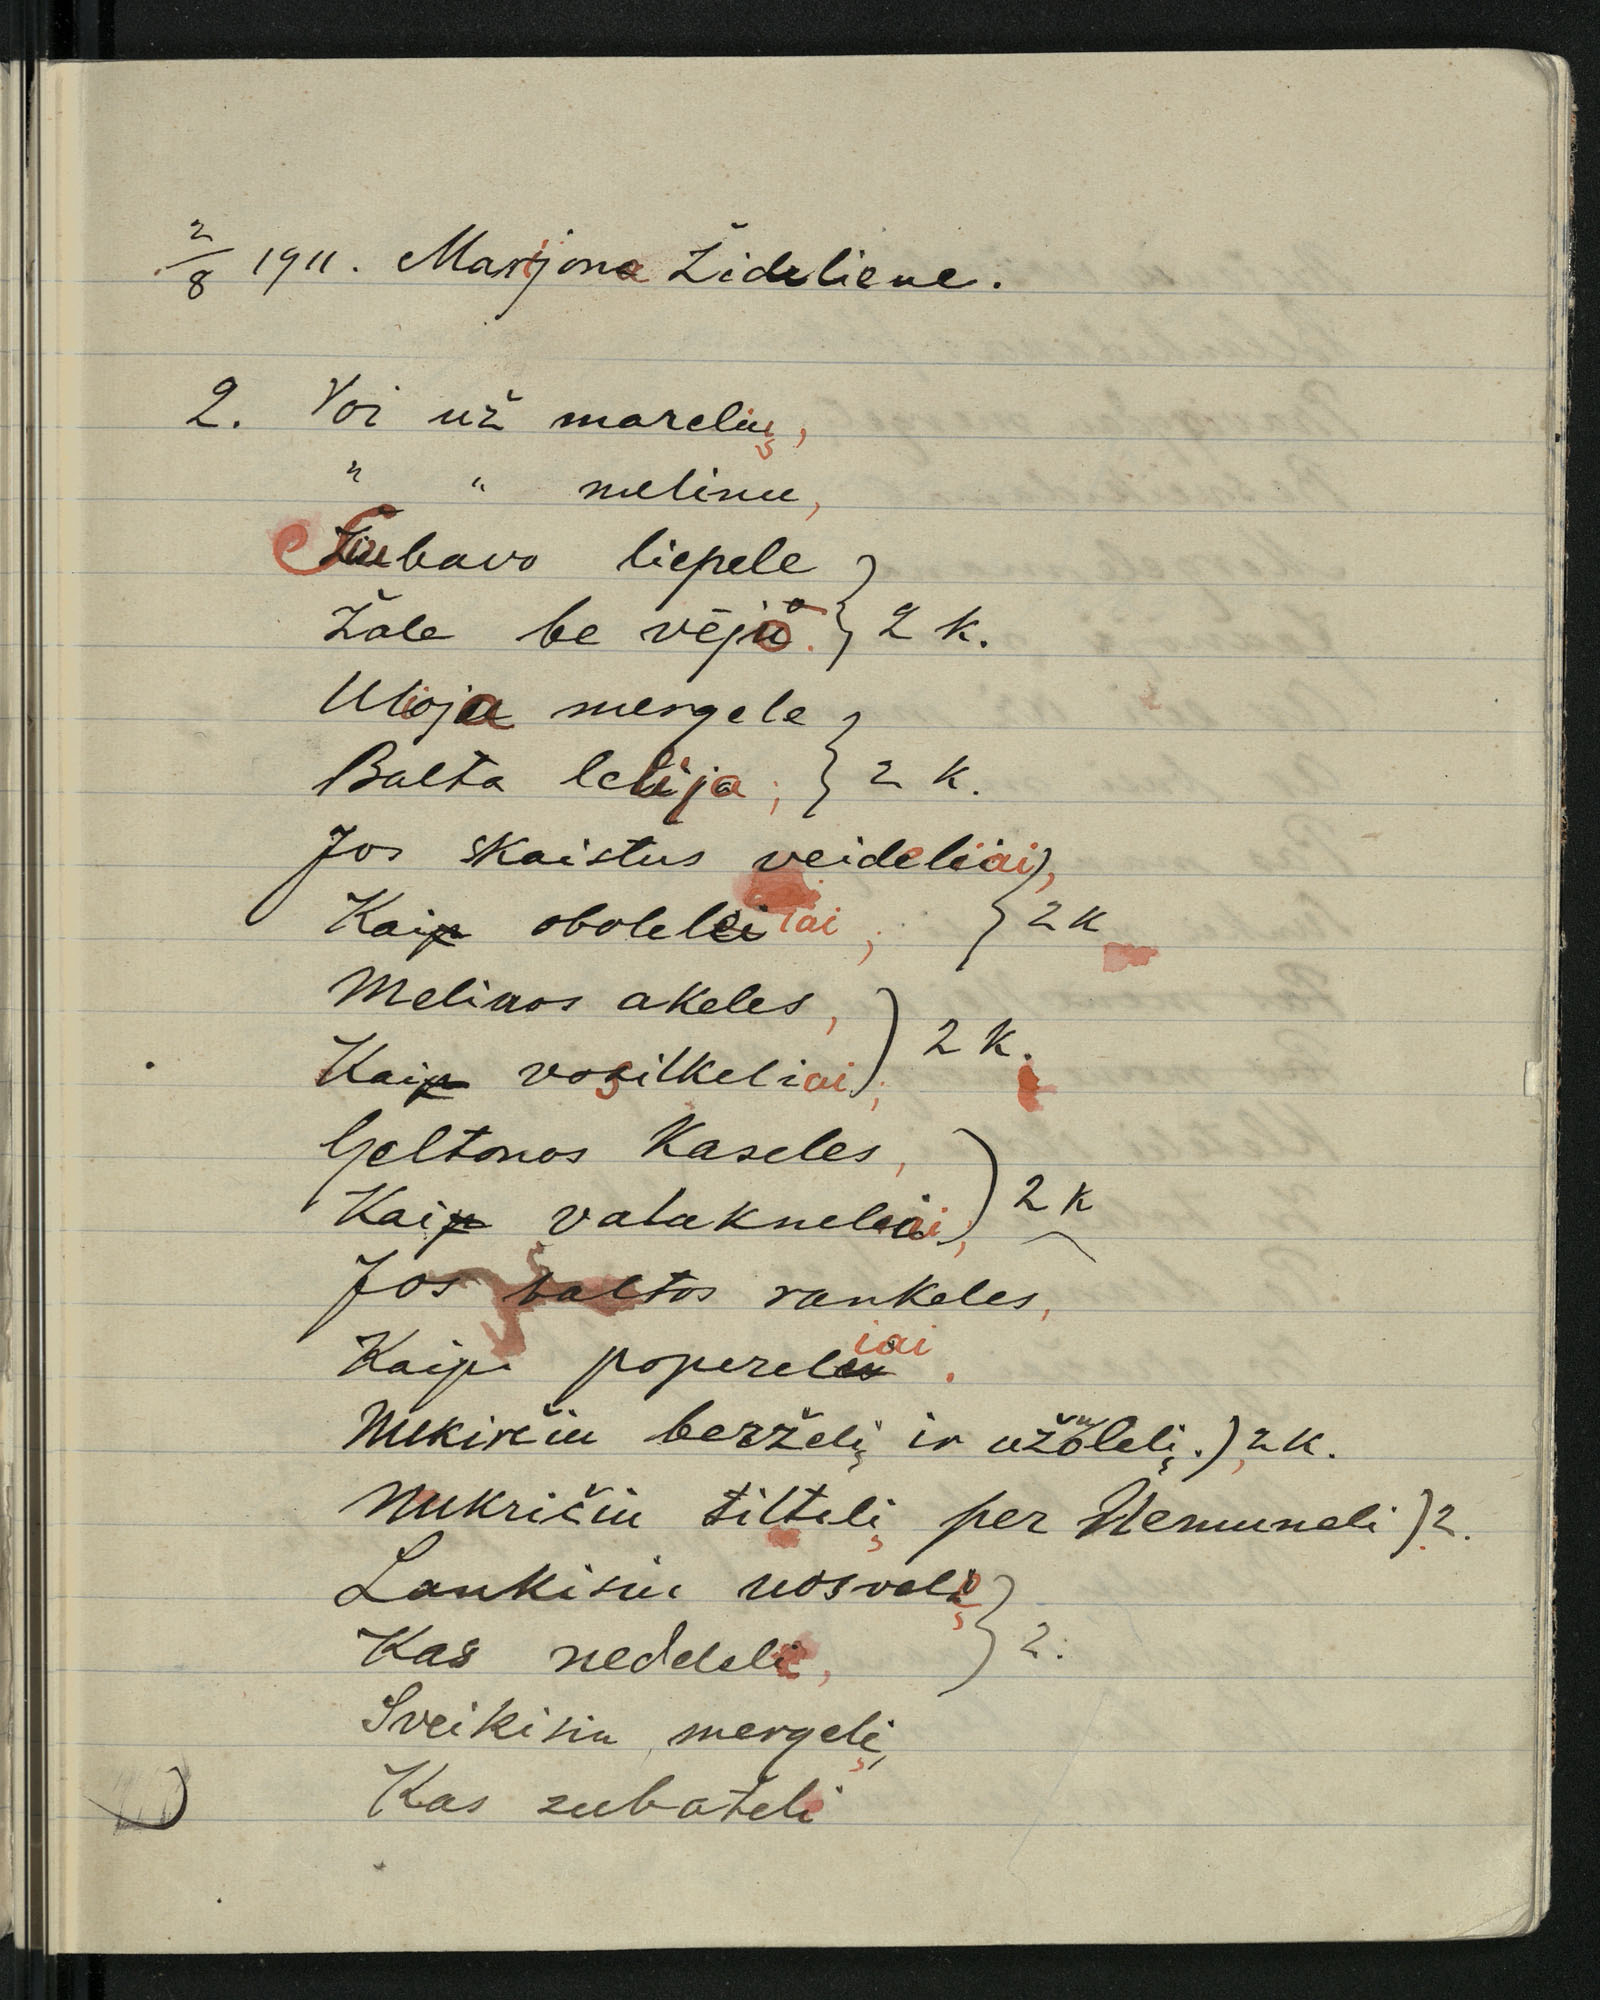 2/8 1911. Marijona Žideliene.
2. Voi už marelių,
" " melinu,
Siubavo liepele
Žale be vėjo. } 2 k.
Ulioja mergele
Balta lelija; } 2 k.
Jos skaistus veideliai,
Kaip oboleliai; } 2 k
Melinos akeles,
Kaip vosilkeliai; ) 2 k.
Geltonos kaseles,
Kaip valakneliai; ) 2 k
Jos baltos rankeles,
Kaip popereliai.
Nukirčiu berželį ir užolelį.), 2 k.
Nukričiu tiltelį per Nemuneli ) 2.
Lankisiu
Kas nedeleli, } 2.
Sveikisiu mergelį,
Kas subateli